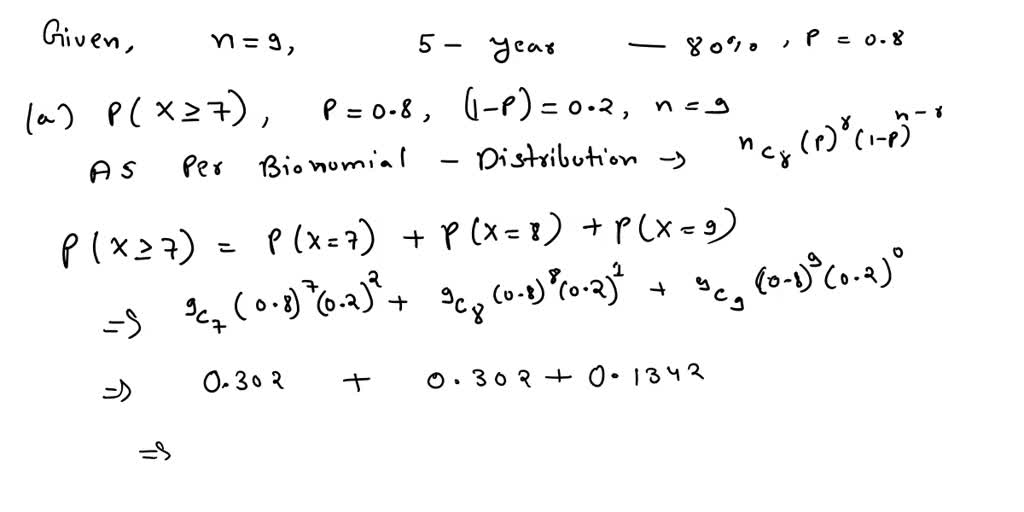 Given, n = 9, 5 - year — 80%, P = 0.8
(a) P(X ≥ 7), P = 0.8, (1-P) = 0.2, n = 9
As Per Bionomial - Distribution → ⁿC᷊r (P)^r (1-P)^{n-r}
P(X ≥ 7) = P(X=7) + P(X=8) + P(X=9)
⇒ ⁹C₇ (0.8)⁷(0.2)² + ⁹C₈ (0.8)⁸(0.2)¹ + ⁹C₉ (0.8)⁹(0.2)⁰
⇒ 0.302 + 0.302 + 0.1342
⇒